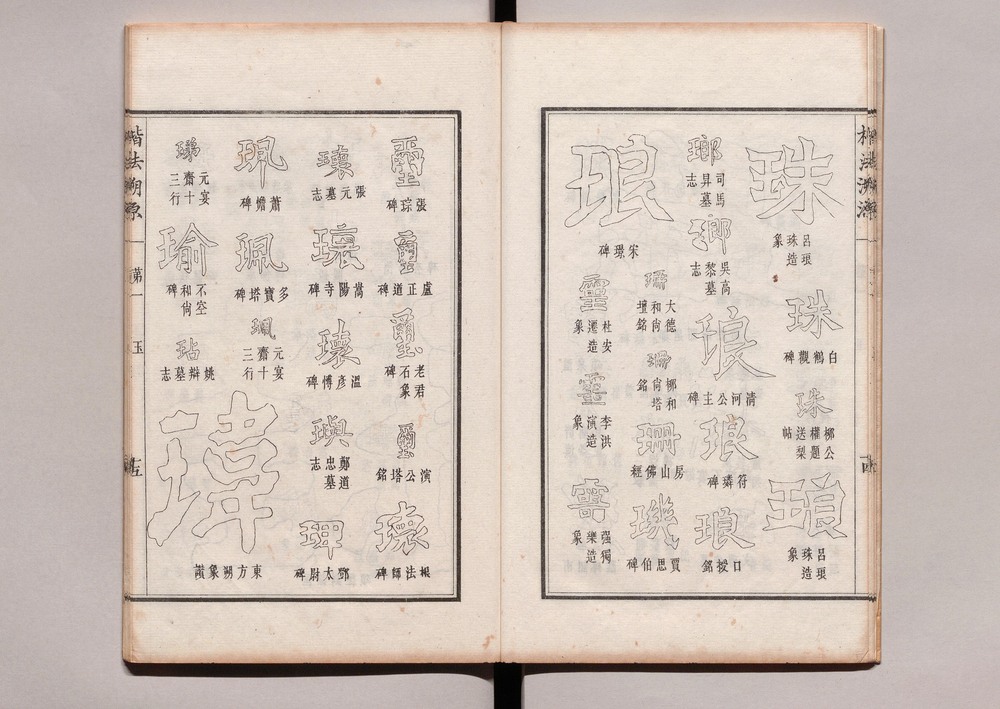 珠
呂琅
珠造
象
珠
白鶴觀碑
珠
柳公
權題
送梨
帖
琅
呂琅
珠造
象
瑯
司馬
昇墓
志
瑯
吳高
黎墓
志
琅
清河公主碑
琅
符璘碑
琅
口授銘
珊
大德
和尙
壇銘
珊
柳和
尙塔
銘
珊
房山佛經
璣
賈思伯碑
琅
宋璟碑
靈
杜安
遷造
象
靈
李洪
演造
象
靈
强獨
樂造
象
楷法溯源
第一
玉
璽
張琮碑
璽
盧正道碑
璽
老君
石象
碑
璽
演公塔銘
瓌
根法師碑
瓌
張元墓志
瓌
嵩陽寺碑
瓌
溫彥博碑
璵
鄭道
忠墓
志
珅
鄧太尉碑
珮
蕭憺碑
珮
多寶塔碑
珮
元宴
齋十
三行
瑋
東方朔象讚
珶
元宴
齋十
三行
瑜
不空
和尙
碑
玷
姚辯墓志
楷法溯源